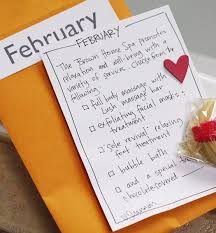 February
FEBRUARY
The Brown Home Spa promotes
relaxation and well-being with a
variety of services. Choose from the
following:
□ full body massage with
Lush massage bar
□ exfoliating facial masks
treatment
□ "Sole revival" relaxing
foot treatment
□ bubble bath
□ and a special
chocolate covered